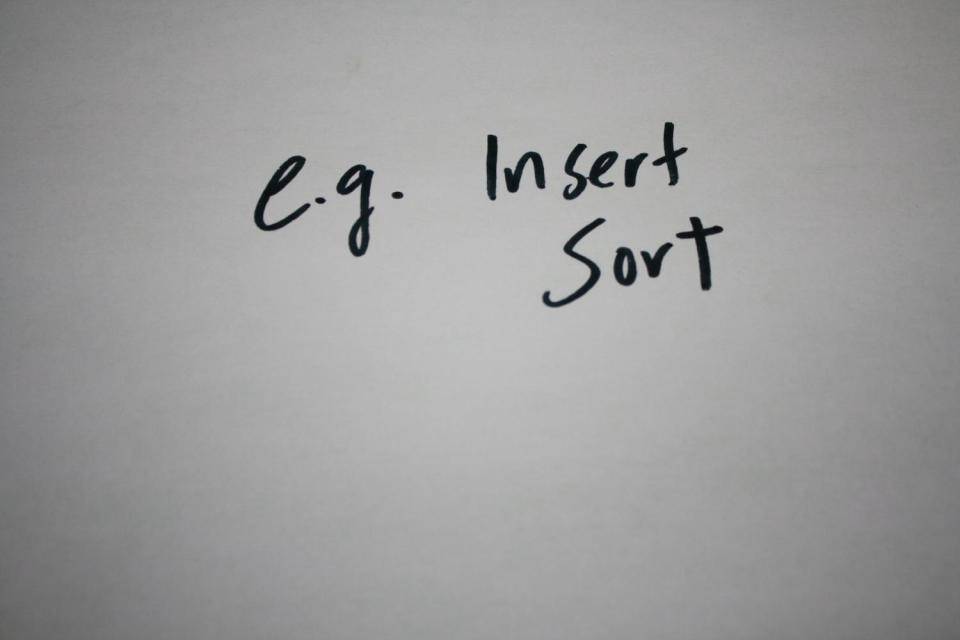 e.g. Insert
Sort